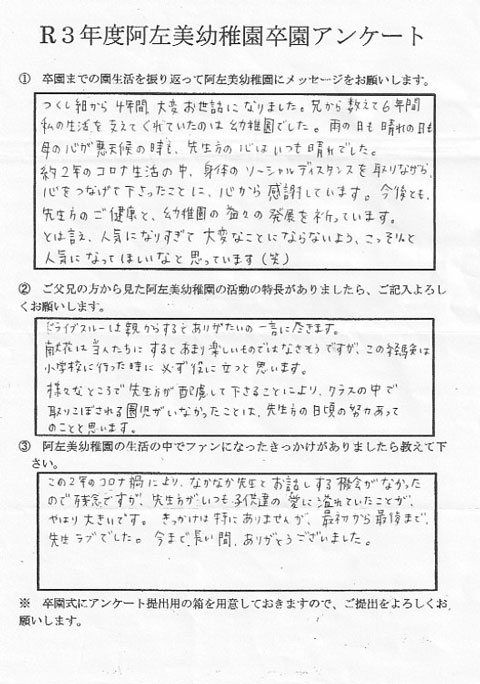 R3年度阿左美幼稚園卒園アンケート
① 卒園までの園生活を振り返って阿左美幼稚園にメッセージをお願いします。
つくし組から4年間、大変お世話になりました。兄から数えて6年間
私の生活を支えてくれていたのは幼稚園でした。雨の日も晴れの日も
母の心が悪天候の時も、先生方の心はいつも晴れでした。
約2年のコロナ生活の中、身体のソーシャルディスタンスを取りながら、
心をつなげて下さったことに、心から感謝しています。今後とも、
先生方のご健康と、幼稚園の益々の発展を祈っています。
とは言え、人気になりすぎて大変なことにならないよう、こっそりと
人気になってほしいなと思っています(笑)
② ご父兄の方から見た阿左美幼稚園の活動の特長がありましたら、ご記入よろし
くお願いします。
ドライブスルーは親からするとありがたいの一言に尽きます。
献花は当人たちにするとあまり楽しいものではなさそうですが、この経験は
小学校に行った時に必ず役に立つと思います。
様々なところで先生方が配慮して下さることにより、クラスの中で
取りこぼされる園児がいなかったことは、先生方の日頃の努力あって
のことと思います。
③ 阿左美幼稚園の生活の中でファンになったきっかけがありましたら教えて下
さい。
この2年のコロナ禍により、なかなか先生とお話しする機会がなかった
ので残念ですが、先生方がいつも子供達の愛に溢れていたことが、
やはり大きいです。きっかけは特にありませんが、最初から最後まで、
先生ラブでした。今まで、長い間、ありがとうございました。
※ 卒園式にアンケート提出用の箱を用意しておきますので、ご提出をよろしくお
願いします。